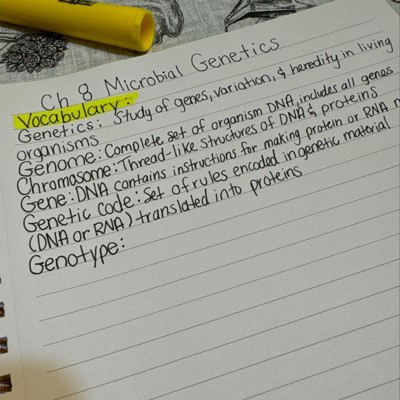 Ch 8 Microbial Genetics
Vocabulary:
Genetics: Study of genes, variation, & heredity in living
organisms
Genome: Complete set of organism DNA, includes all genes
Chromosome: Thread-like structures of DNA & proteins
Gene: DNA contains instructions for making protein or RNA
Genetic code: Set of rules encoded in genetic material
(DNA or RNA) translated into proteins
Genotype: